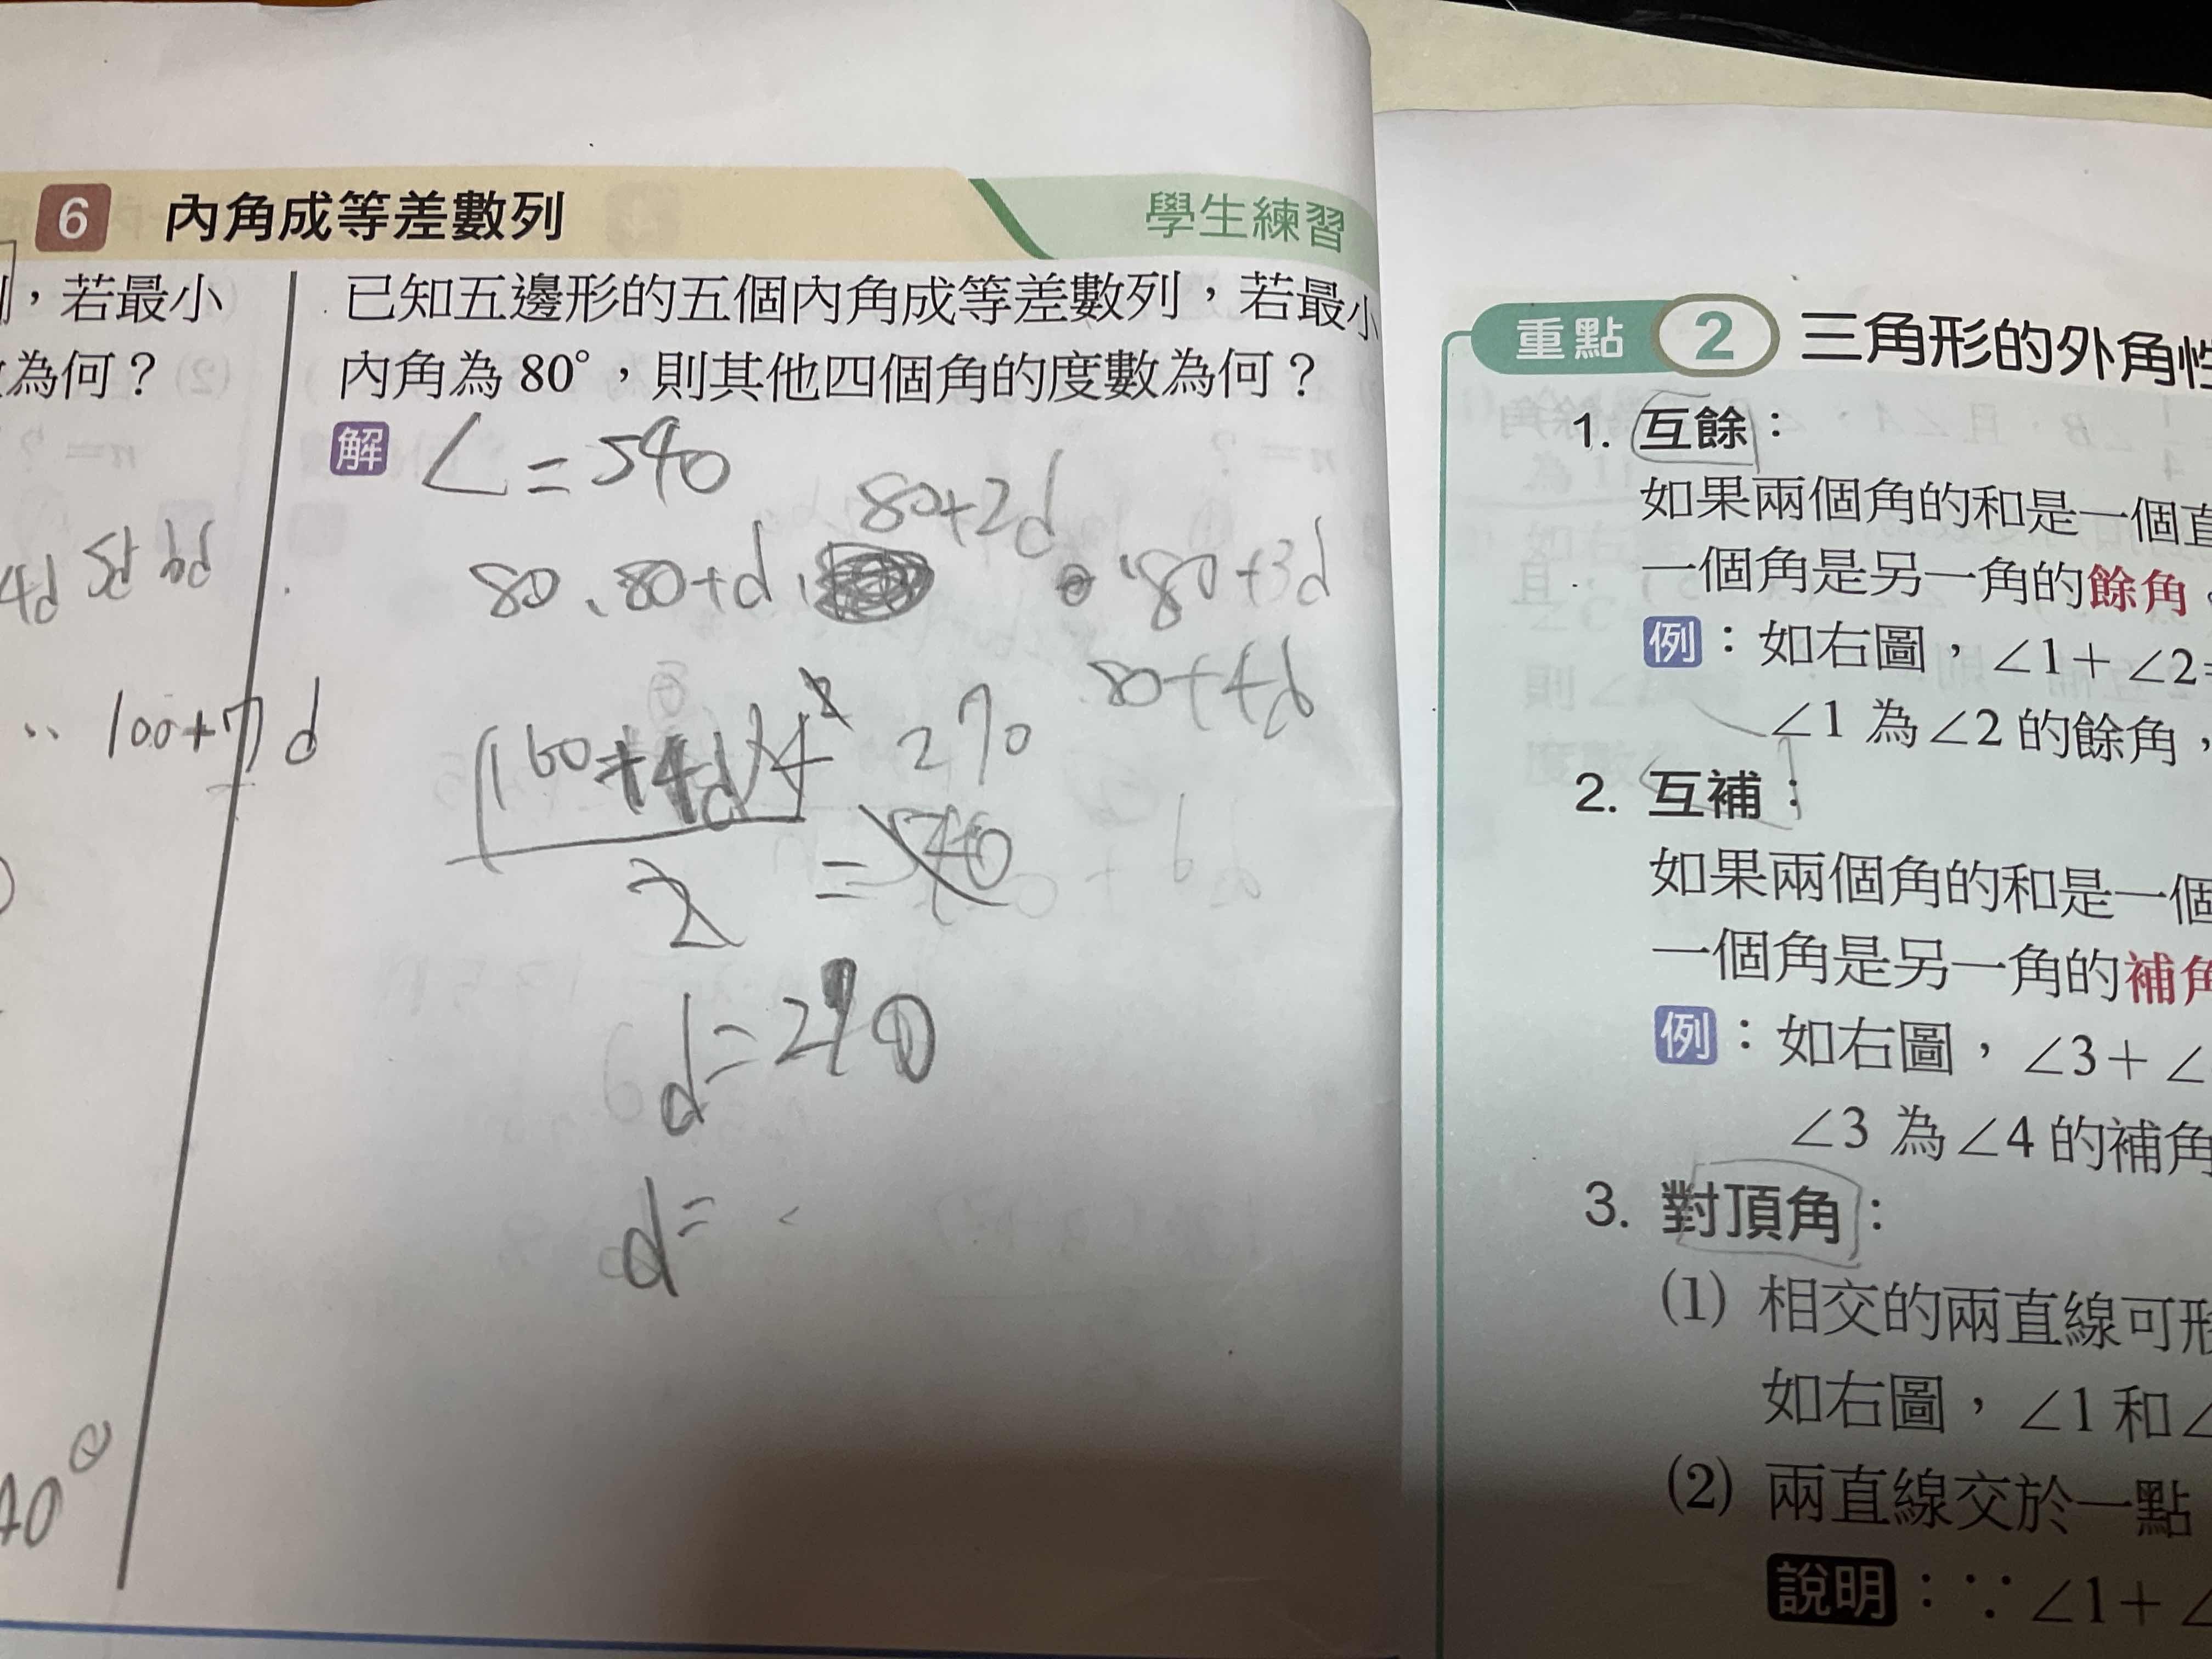 6 內角成等差數列
學生練習
,若最小
為何?
4d 5d 6d
100+7d
40°
已知五邊形的五個內角成等差數列,若最小
內角為 80°,則其他四個角的度數為何?
解 ∠=540
80、80+d、80+2d、80+3d
80+4d
(160+4d)4 2 270
2 = 540
d=270
d=
重點 2 三角形的外角性
1. 互餘:
如果兩個角的和是一個直
一個角是另一角的餘角
例:如右圖,∠1+∠2=
∠1 為∠2 的餘角,
2. 互補:
如果兩個角的和是一個
一個角是另一角的補角
例:如右圖,∠3+∠
∠3 為∠4 的補角
3. 對頂角:
(1) 相交的兩直線可形
如右圖,∠1 和∠
(2) 兩直線交於一點
說明:∵∠1+∠